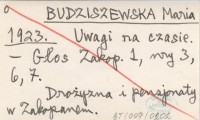 BUDZISZEWSKA Maria
1923. Uwagi na czasie.
– Głos Zakop. 1, nry 3,
6, 7.
Drożyzna i pensjonaty
w Zakopanem.